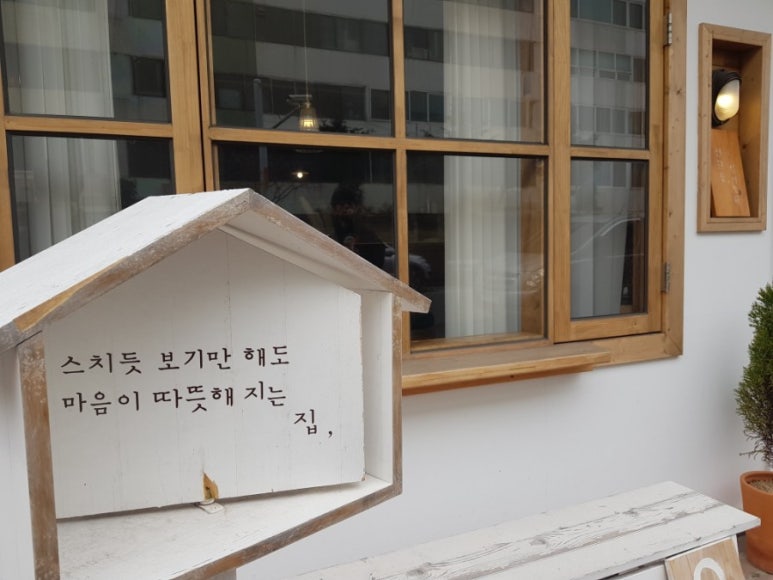 스치듯 보기만 해도
마음이 따뜻해 지는
집,